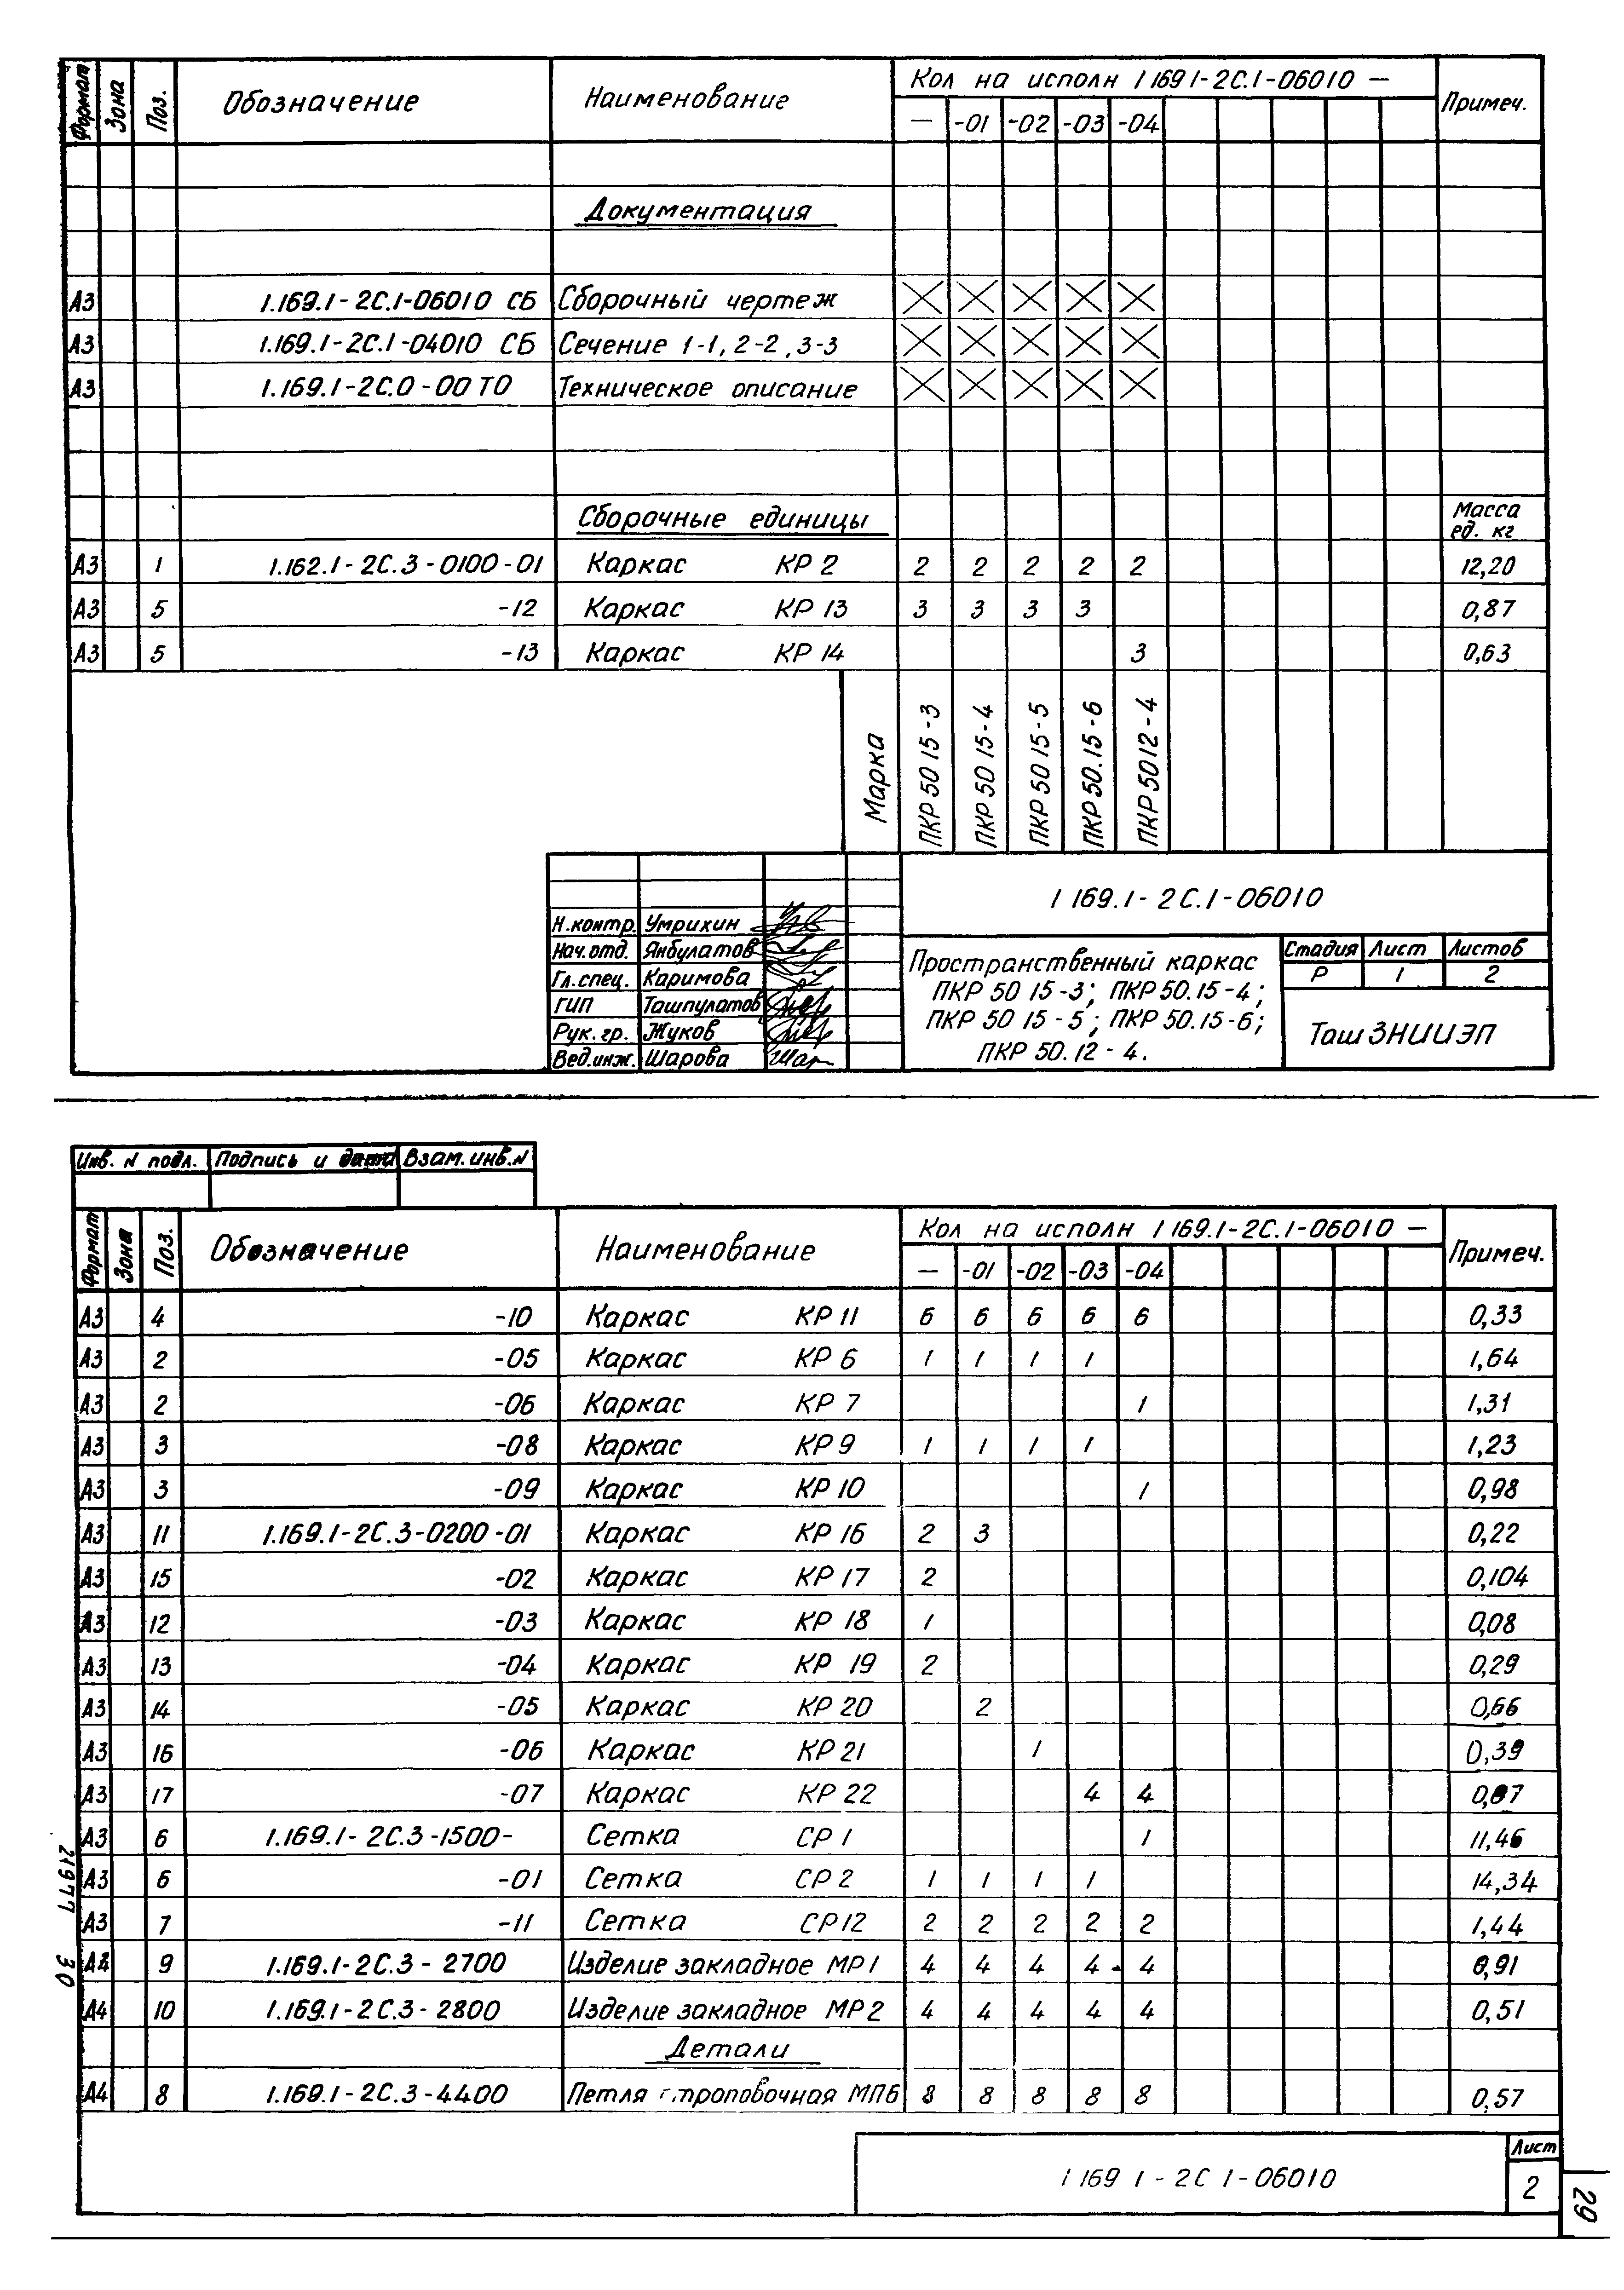 Формат Зона Поз. Обозначение Наименование Кол на исполн 1 169 1-2С.1-06010 — Примеч.
— -01 -02 -03 -04
Документация
А3 1.169.1-2С.1-06010 СБ Сборочный чертеж
А3 1.169.1-2С.1-04010 СБ Сечение 1-1, 2-2, 3-3
А3 1.169.1-2С.0-00 ТО Техническое описание
Сборочные единицы Масса ед. кг
А3 1 1.162.1-2С.3-0100-01 Каркас КР 2 2 2 2 2 2 12,20
А3 5 -12 Каркас КР 13 3 3 3 3 0,87
А3 5 -13 Каркас КР 14 3 0,63
Марка ПКР 50 15-3 ПКР 50 15-4 ПКР 50 15-5 ПКР 50.15-6 ПКР 50 12-4
1 169.1-2С.1-06010
Н.контр. Умрихин
Нач.отд. Янбулатов
Гл.спец. Каримова
ГИП Ташпулатов
Рук.гр. Жуков
Вед.инж. Шарова Шар
Пространственный каркас
ПКР 50 15-3; ПКР 50.15-4;
ПКР 50 15-5; ПКР 50.15-6;
ПКР 50.12-4.
Стадия Лист Листов
Р 1 2
ТашЗНИИЭП
Инв. N подл. Подпись и дата Взам.инв.N
Формат Зона Поз. Обозначение Наименование Кол на исполн 1 169.1-2С.1-06010 — Примеч.
— -01 -02 -03 -04
А3 4 -10 Каркас КР 11 6 6 6 6 6 0,33
А3 2 -05 Каркас КР 6 1 1 1 1 1,64
А3 2 -06 Каркас КР 7 1 1,31
А3 3 -08 Каркас КР 9 1 1 1 1 1,23
А3 3 -09 Каркас КР 10 1 0,98
А3 11 1.169.1-2С.3-0200-01 Каркас КР 16 2 3 0,22
А3 15 -02 Каркас КР 17 2 0,104
А3 12 -03 Каркас КР 18 1 0,08
А3 13 -04 Каркас КР 19 2 0,29
А3 14 -05 Каркас КР 20 2 0,66
А3 16 -06 Каркас КР 21 1 0,39
А3 17 -07 Каркас КР 22 4 4
А3 6 1.169.1-2С.3-1500- Сетка СР 1 1 11,46
А3 6 -01 Сетка СР 2 1 1 1 1 14,34
А3 7 -11 Сетка СР 12 2 2 2 2 2 1,44
9 1.169.1-2С.3-2700 Изделие закладное МР 1 4 4 4 4 4 0,91
А4 10 1.169.1-2С.3-2800 Изделие закладное МР 2 4 4 4 4 4 0,51
Детали
А4 8 1.169.1-2С.3-4400 Петля строповочная МП6 8 8 8 8 8 0,57
1 169 1-2С 1-06010
Лист
2
21977 30
29